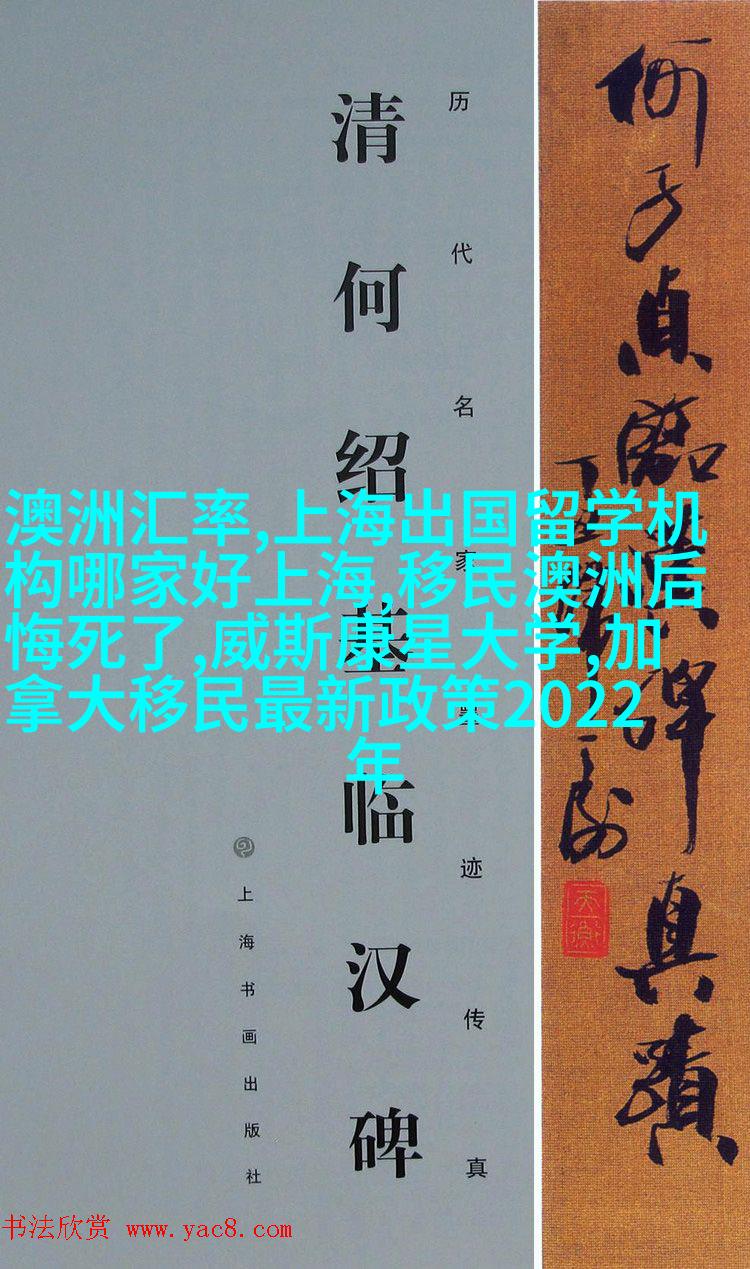 历代名家墨迹传真
清何绍基临汉碑
上海书画出版社
何子貞臨漢碑真蹟
澳洲汇率,上海出国留学机
构哪家好上海,移民澳洲后
悔死了,威斯康星大学,加
拿大移民最新政策2022
年
书法欣赏 www.yac8.com